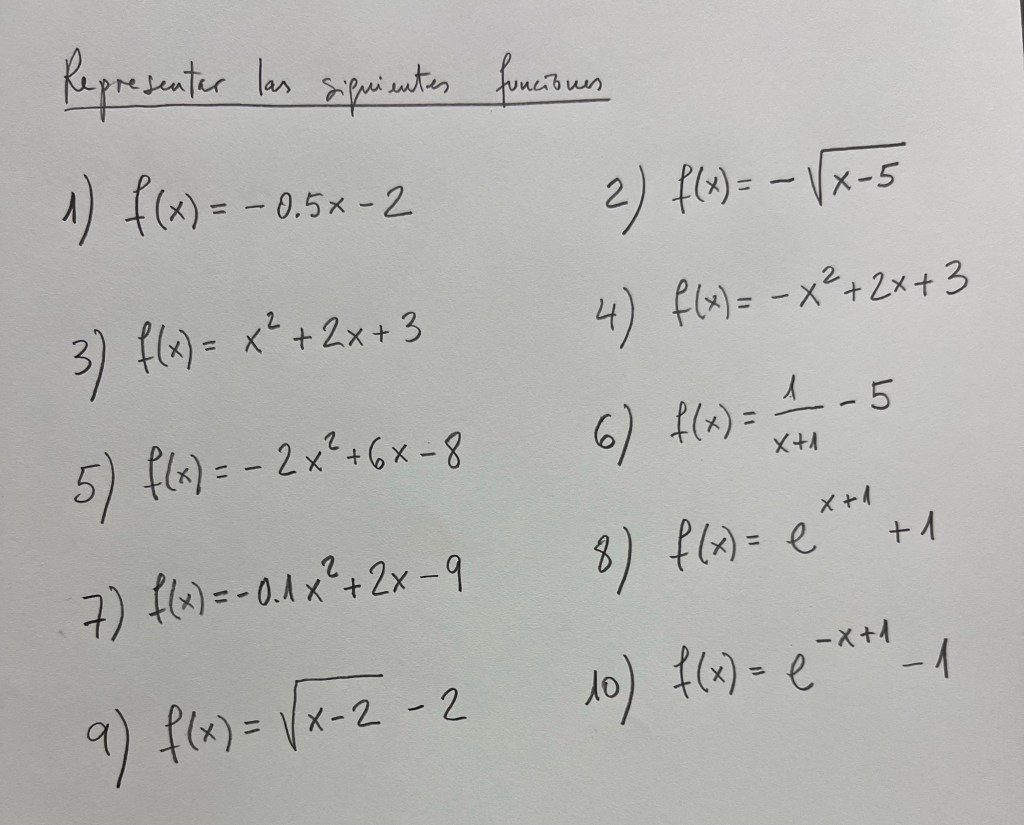 Representar las siguientes funciones
1) f(x) = -0.5x - 2
2) f(x) = -√(x-5)
3) f(x) = x² + 2x + 3
4) f(x) = -x² + 2x + 3
5) f(x) = -2x² + 6x - 8
6) f(x) = 1/(x+1) - 5
7) f(x) = -0.1x² + 2x - 9
8) f(x) = e^(x+1) + 1
9) f(x) = √(x-2) - 2
10) f(x) = e^(-x+1) - 1